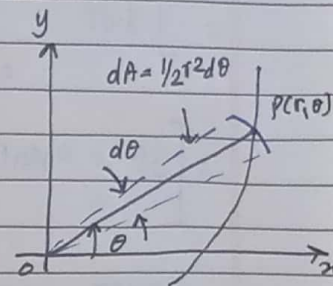 y
dA = 1/2 r2dθ
P(r,θ)
dθ
θ
O
x